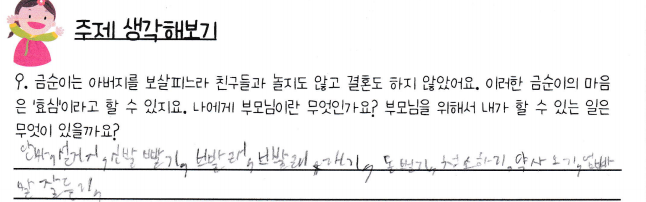 주제 생각해보기
9. 금순이는 아버지를 보살피느라 친구들과 놀지도 않고 결혼도 하지 않았어요. 이러한 금순이의 마음
은 '효심'이라고 할 수 있지요. 나에게 부모님이란 무엇인가요? 부모님을 위해서 내가 할 수 있는 일은
무엇이 있을까요?
안마, 설거지, 빨기, 개기, 돈 벌기, 청소하기, 약사오기, 엄빠
말 잘듣기,